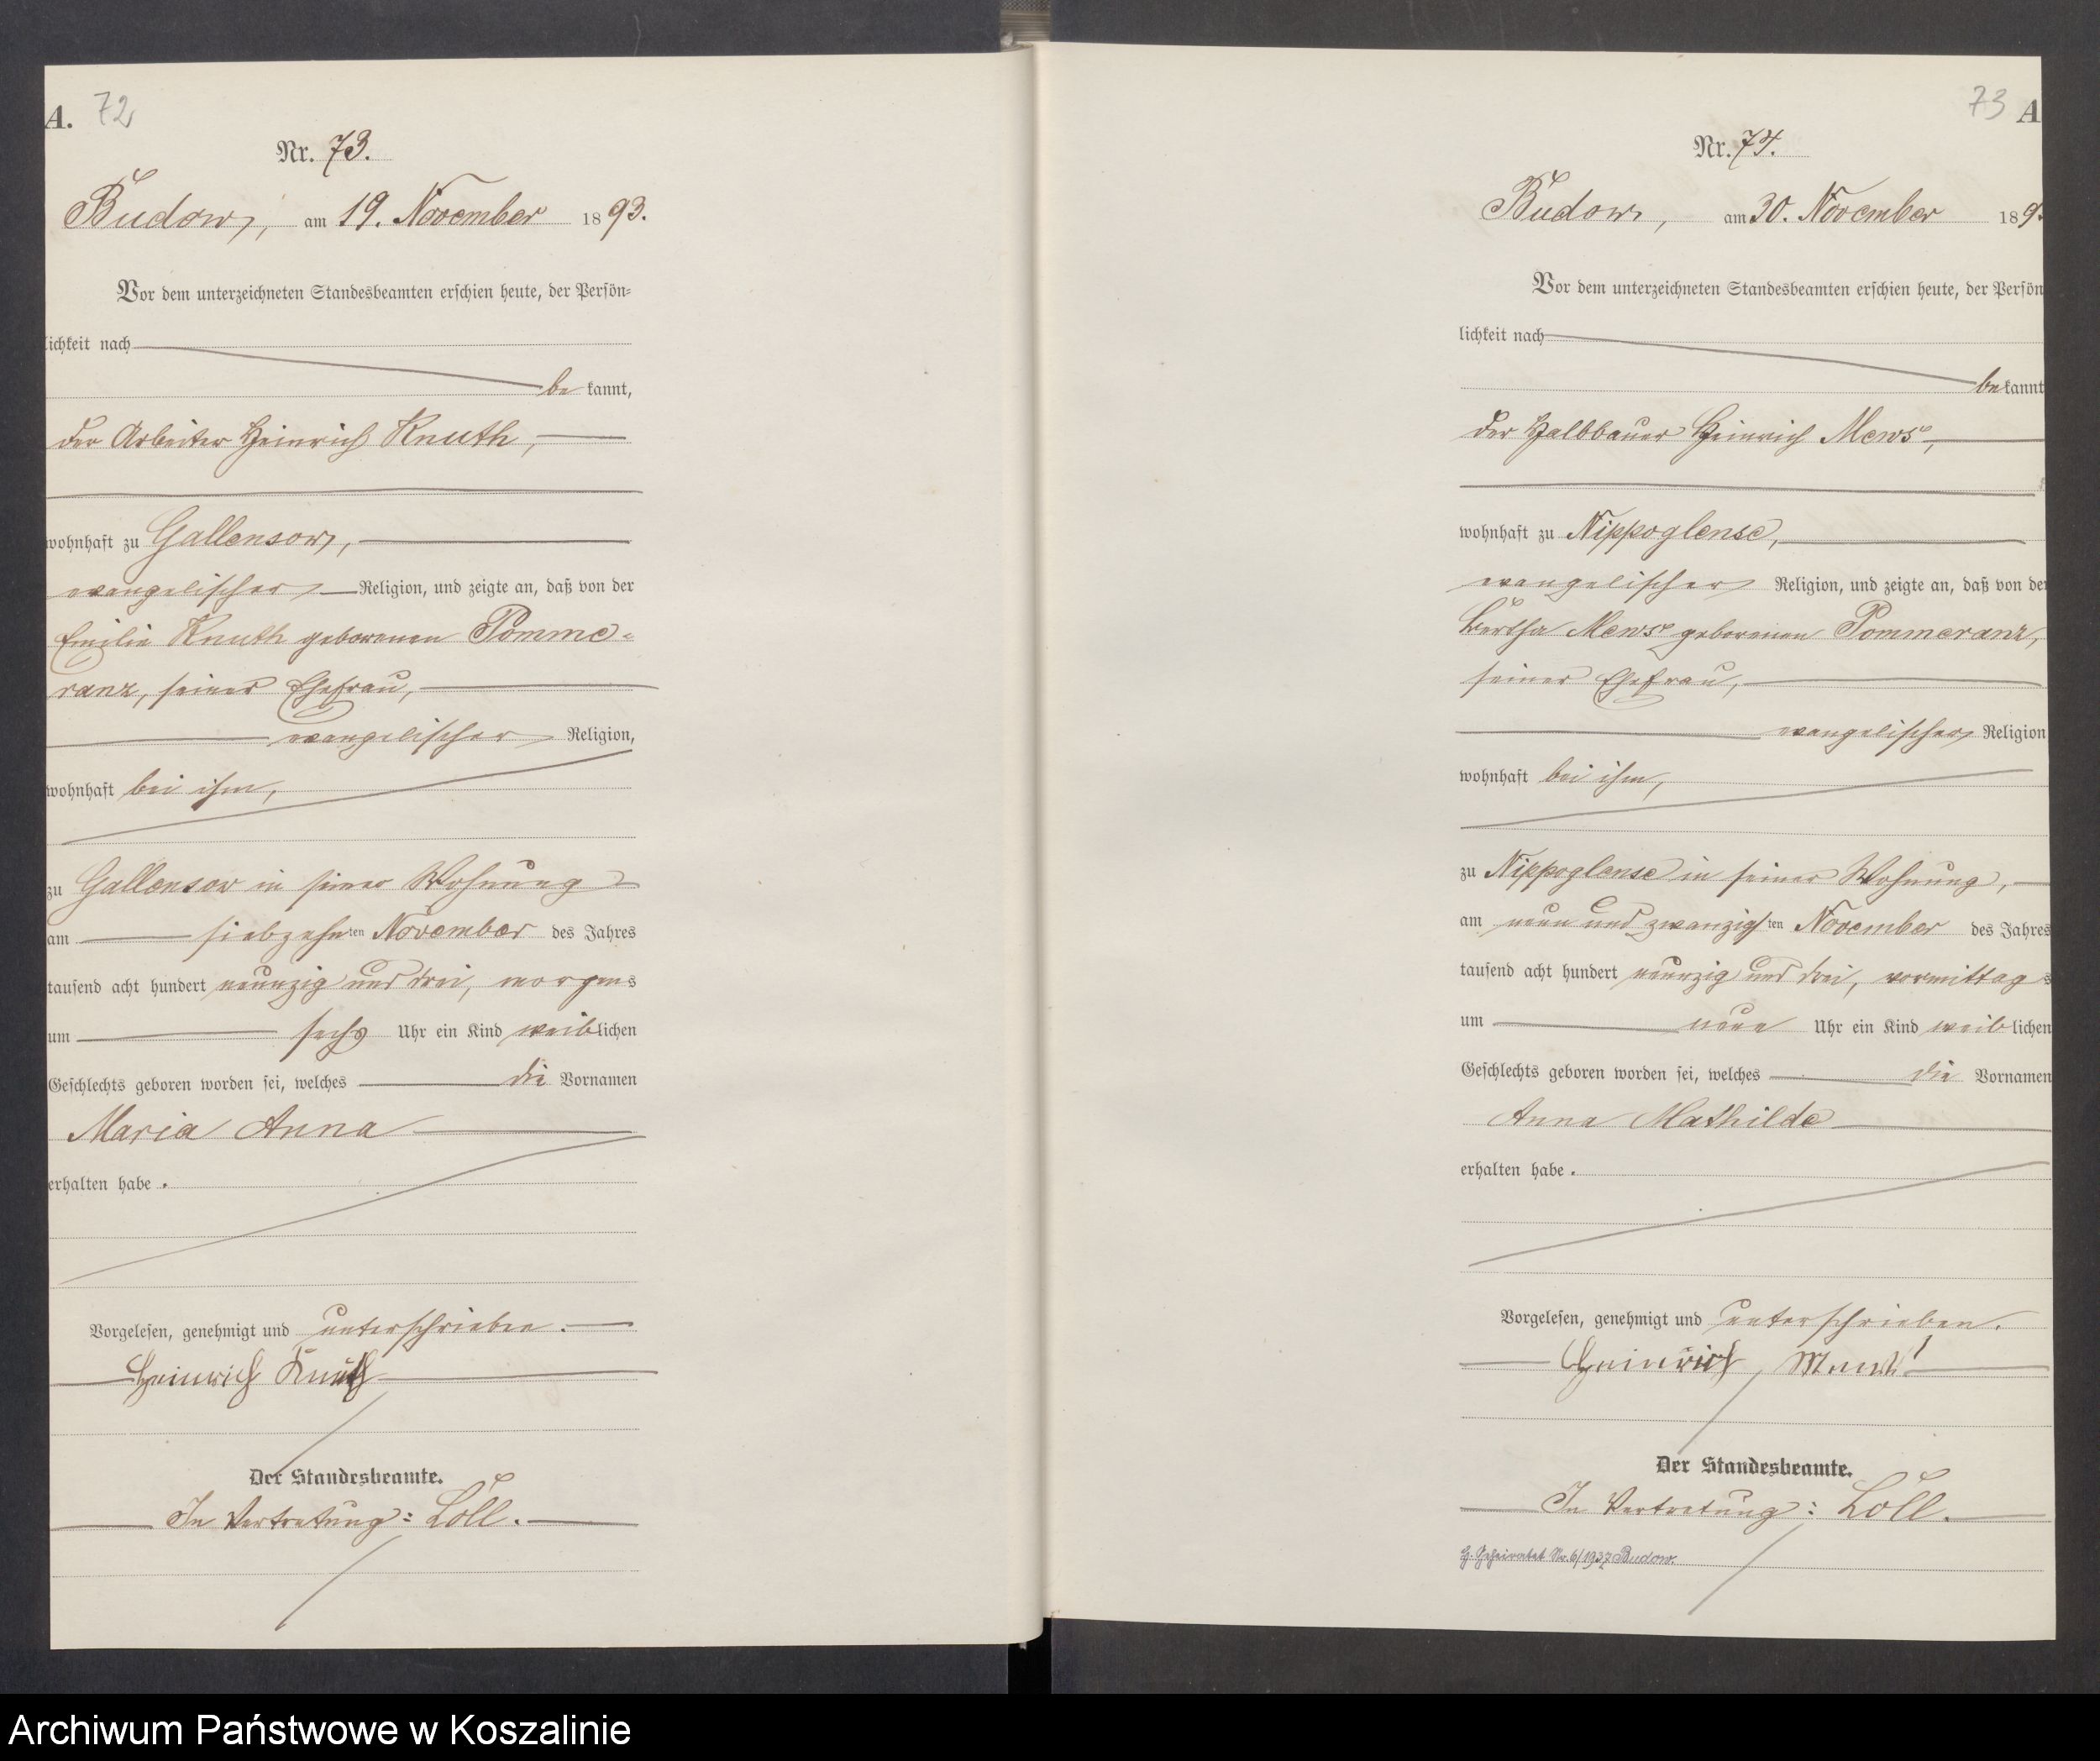 A. 72
Nr. 73.
Budow, am 19. November 1893.
Vor dem unterzeichneten Standesbeamten erschien heute, der Persön-
lichkeit nach
be kannt,
der Arbeiter Heinrich Knuth,
wohnhaft zu Gallensow,
evangelischer Religion, und zeigte an, daß von der
Emilie Knuth geborenen Pomme-
ranz, seiner Ehefrau,
evangelischer Religion,
wohnhaft bei ihm,
zu Gallensow in seiner Wohnung
am siebzehnten November des Jahres
tausend acht hundert neunzig und drei, morgens
um sechs Uhr ein Kind weiblichen
Geschlechts geboren worden sei, welches die Vornamen
Maria Anna
erhalten habe.
Vorgelesen, genehmigt und unterschrieben.
Heinrich Knuth
Der Standesbeamte.
In Vertretung: Löll.
73 A
Nr. 74.
Budow, am 30. November 189
Vor dem unterzeichneten Standesbeamten erschien heute, der Persön
lichkeit nach
bekannt
der Halbbauer Heinrich Mews,
wohnhaft zu Nippoglense,
evangelischer Religion, und zeigte an, daß von der
Bertha Mews geborenen Pommeranz,
seiner Ehefrau,
evangelischer Religion
wohnhaft bei ihm,
zu Nippoglense in seiner Wohnung,
am neun und zwanzigsten November des Jahres
tausend acht hundert neunzig und drei, vormittags
um neun Uhr ein Kind weiblichen
Geschlechts geboren worden sei, welches die Vornamen
Anna Mathilde
erhalten habe.
Vorgelesen, genehmigt und unterschrieben.
Heinrich
Der Standesbeamte.
In Vertretung: Löll.
Geheiratet No. 6/1937 Budow.
Archiwum Państwowe w Koszalinie